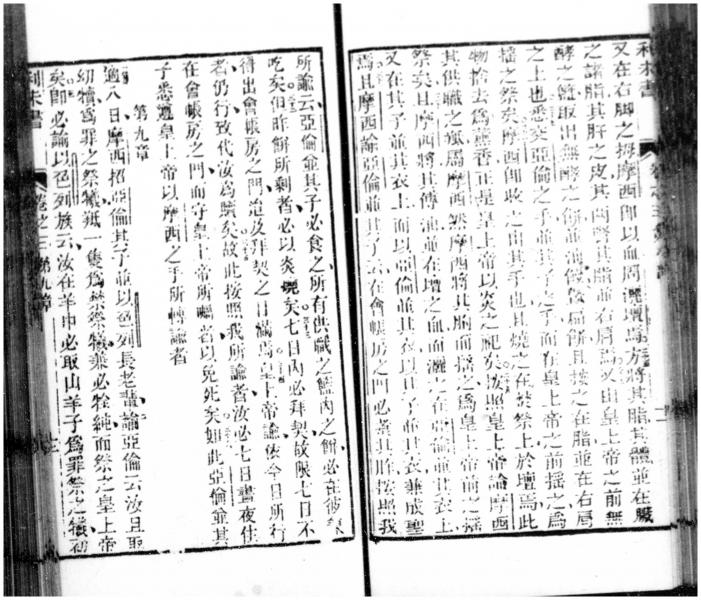 利未書
又在右脚之拇摩西即以血周灑壇焉方將其脂其體並在臟
之諸脂其肝之皮其兩腎其脂並右肩焉又由皇上帝之前無
酵之籃取出無酵之餅並油餅餅且按之在脂並在右肩
之上也悉交亞倫之手並其子之手而在皇上帝之前搖之為
搖之祭矣摩西卽收之由其手也其燒之在焚祭上於壇焉此
物捨去為薰香正是皇上帝以炎之祀矣按照皇上帝諭摩西
其供職之焉摩西然摩西將其胸而搖之為皇上帝前之搖
祭矣且摩西將其傅油並在壇之血而灑之在亞倫並其衣上
又在其子並其衣上而以亞倫並其衣以其子並其衣兼成聖
焉且摩西諭亞倫並其子云在會帳房之門必煮其胙按照我
所諭云亞倫並其子必食之所有供職之籃內之餅必在彼
吃矣但胙餅所剩者必以炎燒矣七日內必拜契故限七日不
得出會帳房之門迨及拜契之日滿焉皇上帝諭依今日所行
者仍行致代汝為贖矣故此按照我所諭者汝必七日晝夜住
在會帳房之門而守皇上帝所囑者以免死矣如此亞倫並其
子悉遵皇上帝以摩西之手所轉諭者
第九章
適八日摩西招亞倫其子並以色列長老輩諭亞倫云汝且取
幼犢為罪之祭牡羝一隻為焚祭犢兼必牷純而祭之皇上帝
矣卽必諭以色列族云汝在羊中必取山羊子為罪祭之犢
利未書 卷之三 第九章